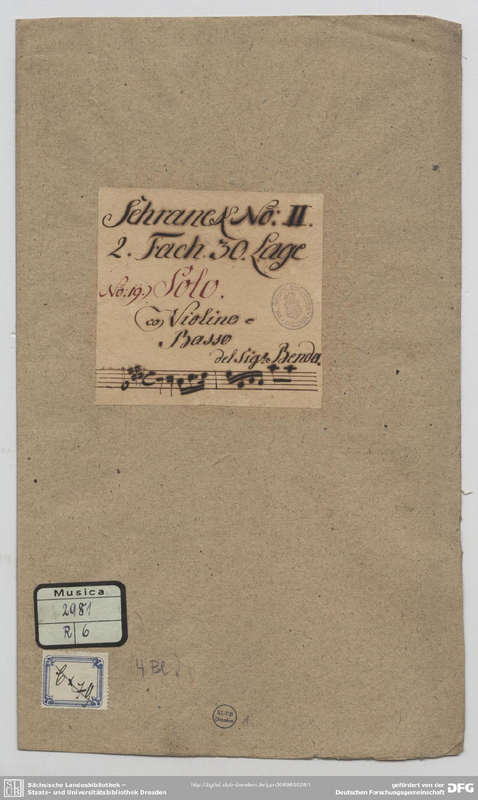 Schranck No: II.
2. Fach. 30. Lage
No: 19.) Solo.
co Violino e
Basso
del Sigr. Benda.
Musica
2981
R 6
4 Bl.
SLUB
Dresden
1
Sächsische Landesbibliothek –
Staats- und Universitätsbibliothek Dresden
http://digital.slub-dresden.de/ppn306960028/1
gefördert von der
Deutschen Forschungsgemeinschaft
DFG